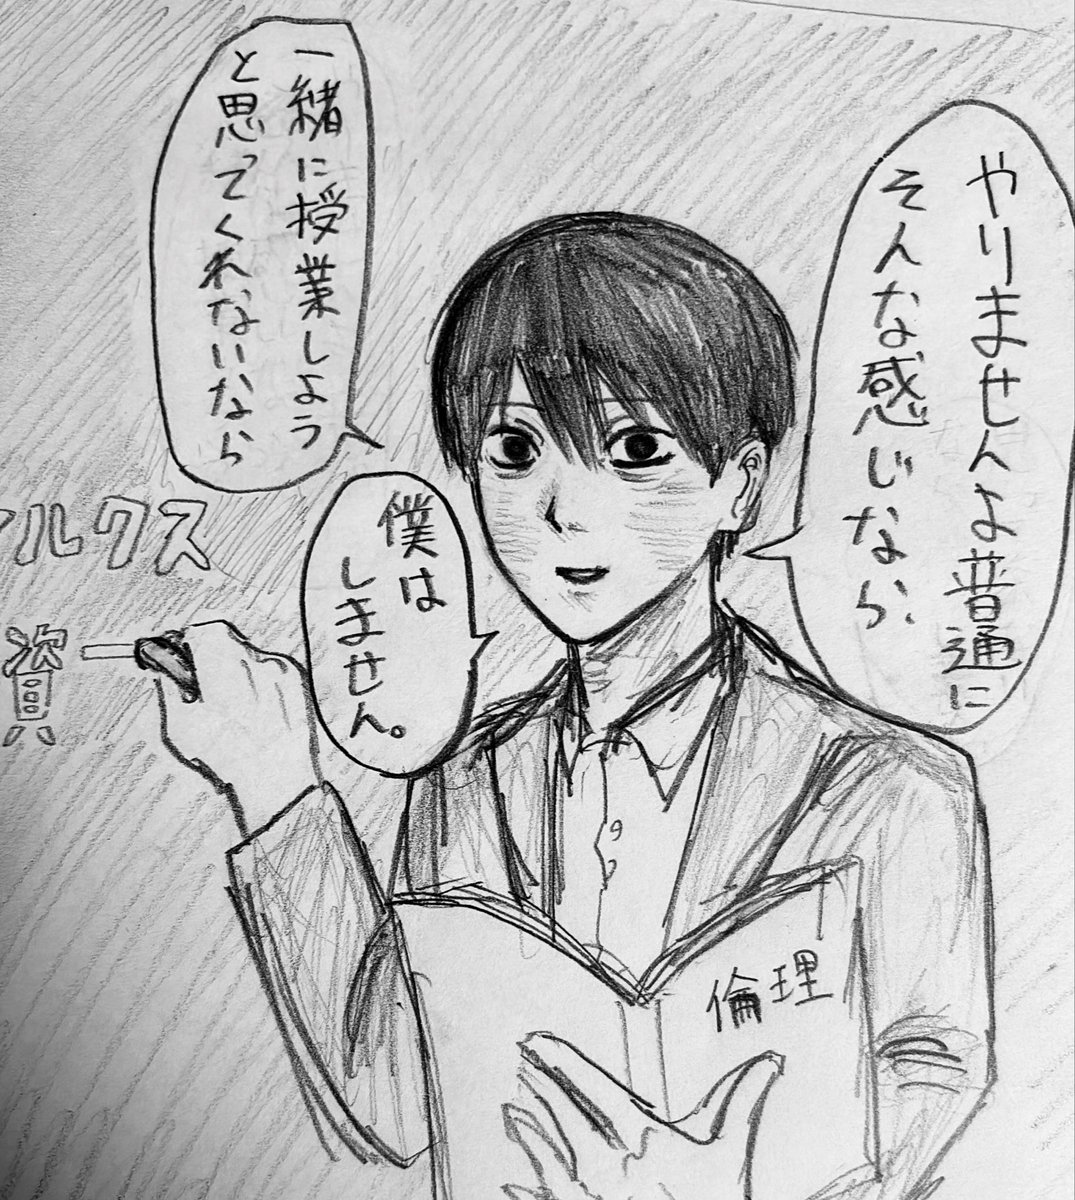 やりませんよ普通に
そんな感じなら、
一緒に授業しよう
と思ってくれないなら
僕は
しません。
ルクス
資
倫理